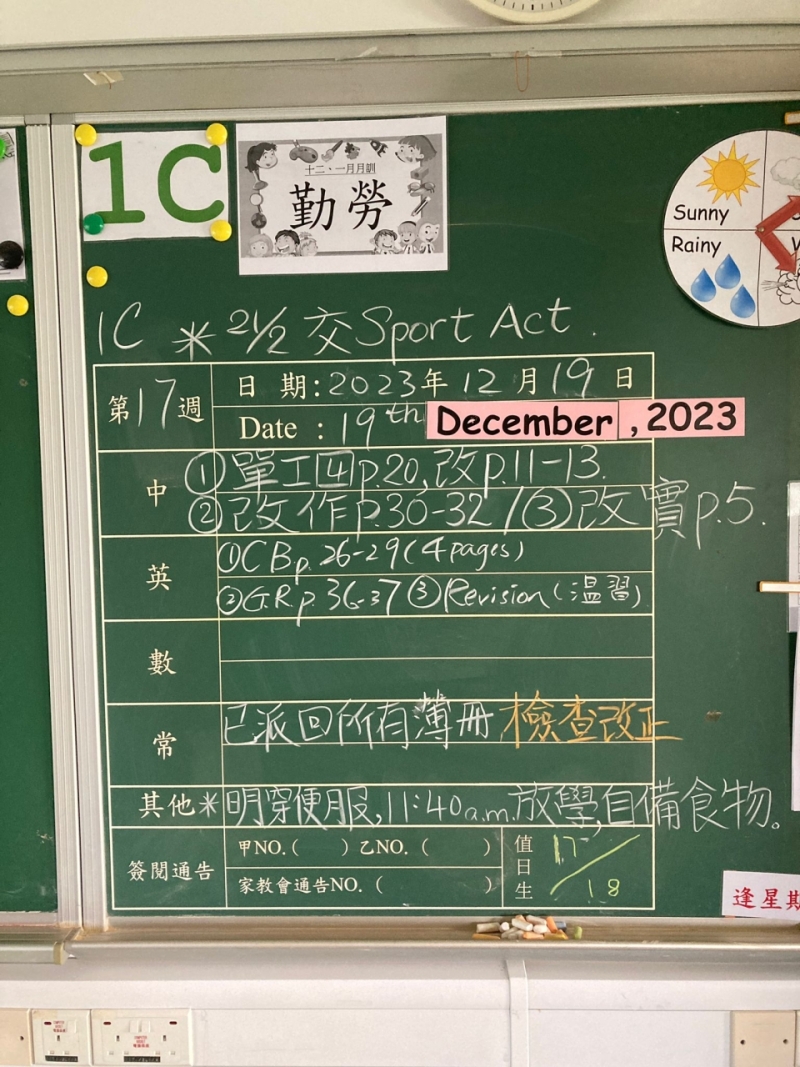 1C
十二、一月月訓
勤勞
Sunny
Rainy
1C * 21/2 交 Sport Act.
第17週
日期:2023年12月19日
Date : 19th December, 2023
中
① 單工四p.20,改p.11-13.
② 改作p.30-32 / ③ 改實p.5.
英
① CB p.26-29 (4 pages)
② G.R.p.36-37 ③ Revision (溫習)
數
常
已派回所有薄冊 檢查改正
其他 * 明穿便服,11:40a.m.放學,自備食物。
簽閱通告
甲NO.( ) 乙NO. ( )
家教會通告NO. ( )
值日生
17/18
逢星期